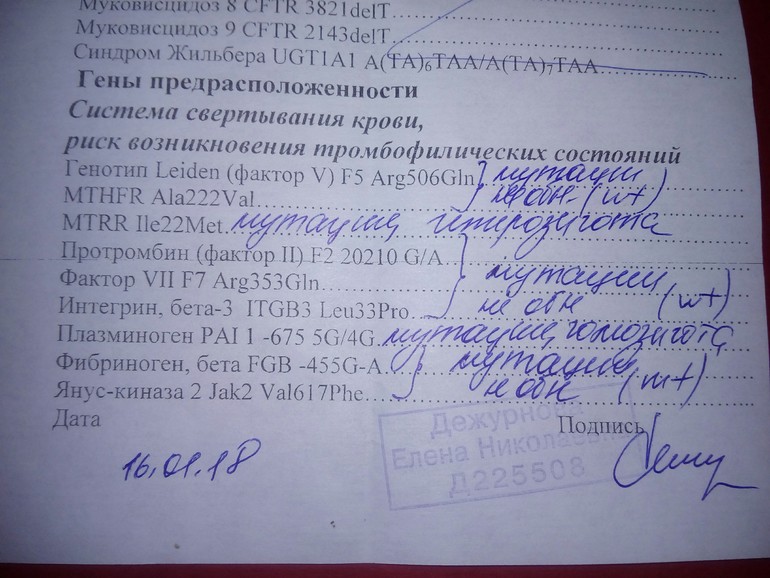 Муковисцидоз 8 CFTR 3821delT
Муковисцидоз 9 CFTR 2143delT
Синдром Жильбера UGT1A1 A(TA)6TAA/A(TA)7TAA
Гены предрасположенности
Система свертывания крови,
риск возникновения тромбофилических состояний
Генотип Leiden (фактор V) F5 Arg506Gln } мутации
MTHFR Ala222Val не обн. (wt)
MTRR Ile22Met мутация, гетерозигота
Протромбин (фактор II) F2 20210 G/A
Фактор VII F7 Arg353Gln } мутации
Интегрин, бета-3 ITGB3 Leu33Pro не обн (wt)
Плазминоген PAI 1 -675 5G/4G мутация, гомозигота
Фибриноген, бета FGB -455G-A } мутации
Янус-киназа 2 Jak2 Val617Phe не обн (wt)
Дата Подпись
Дежурнова
Елена Николаевна
Д225508
16.01.18